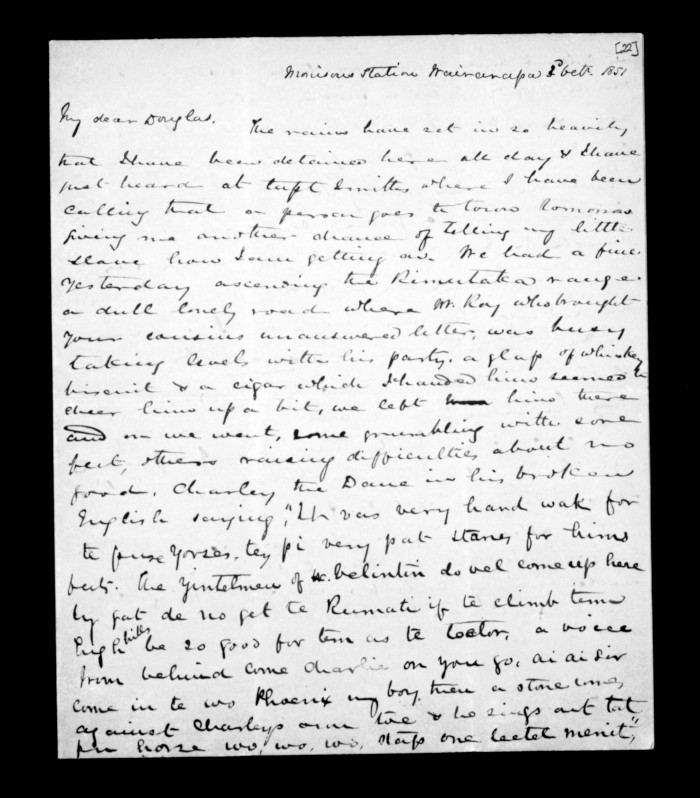 [22]
Morisons Station Wairarapa 8 Octr 1851
My dear Douglas. The rains have set in so heavily
that I have been detained here all day & I have
just heard at Capt Smiths where I have been
calling that a person goes to town tomorrow
giving me another chance of telling my little
slave how I am getting on. We had a fine
Yesterday ascending the Rimutaka range
a dull lonely road where Mr Roy who brought
your cousins unanswered letter, was busy
taking levels with his party. a glass of whiskey
biscuit & a cigar which I handed him seemed to
cheer him up a bit, we left him there
and on we went, some grumbling with sore
feet, others raising difficulties about no
food. Charley the Dane in his broken
English saying, "It vas very hand wak for
te puse Yorses. tey pi very pat stanes for hims
feets. the Yintelmen of belintin do vel come up here
by gat de no get te Rumati if te climb tem
hills be so good for tem as te toctor, a voice
from behind come Charlie on you go, ai ai sir
come in te wo Phoenix my boy, then a stone comes
against Charleys own toe & he sings out tat
horse wo, wo, wo, stap one leetel menit",